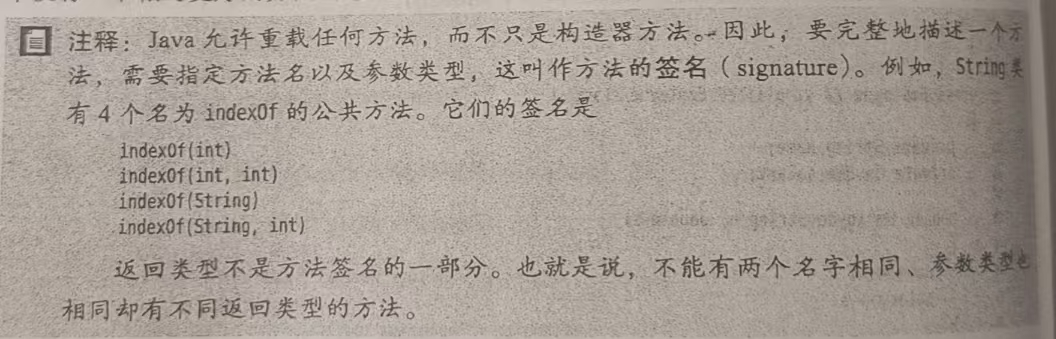 注释：Java 允许重载任何方法，而不只是构造器方法。因此，要完整地描述一个方
法，需要指定方法名以及参数类型，这叫作方法的签名（signature）。例如，String 类
有 4 个名为 indexOf 的公共方法。它们的签名是
indexOf(int)
indexOf(int, int)
indexOf(String)
indexOf(String, int)
返回类型不是方法签名的一部分。也就是说，不能有两个名字相同、参数类型也
相同却有不同返回类型的方法。